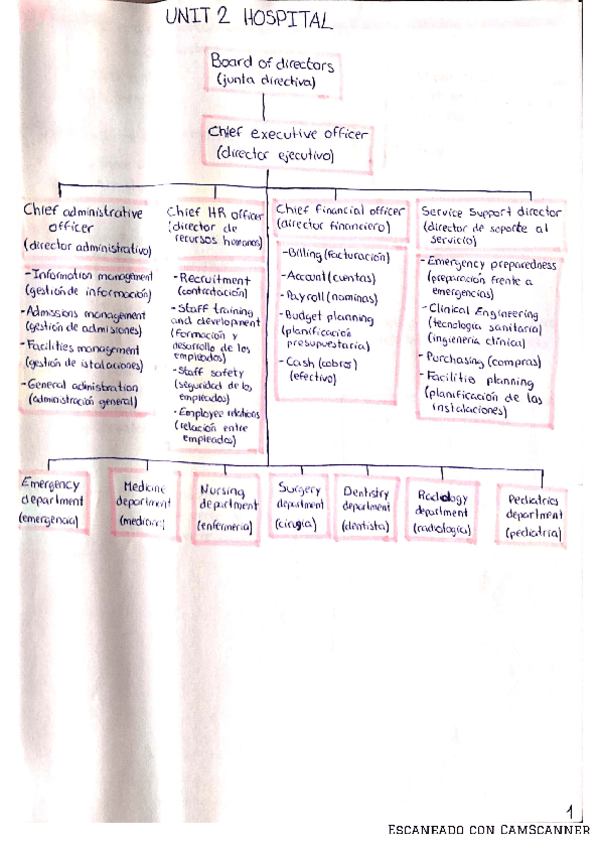 UNIT 2 HOSPITAL
Board of directors
(junta directiva)
Chief executive officer
(director ejecutivo)
Chief administrative
officer
(director administrativo)
-Information management
(gestión de información)
-Admissions management
(gestión de admisiones)
-Facilities management
(gestión de istalaciones)
-General adinistration
(administración general)
Chief HR officer
(director de
recursos humanos)
-Recruitment
(contratación)
-Staff training
and development
(formación y
desarrollo de los
empleados)
-Staff safety
(seguridad de los
empleados)
-Employee relations
(relación entre
empleados)
Chief financial officer
(director financiero)
-Billing (facturación)
-Account (cuentas)
-Payroll (nominas)
-Budget planning
(planificación
presupuestaria)
-Cash (cobros)
(efectivo)
Service Support director
(director de soporte al
servicio)
-Emergency preparedness
(preparación frente a
emergencias)
-Clinical Engineering
(tecnología sanitaria)
(ingienería clínica)
-Purchasing (compras)
-Facilitie planning
(planificación de las
instalaciones)
Emergency
department
(emergencia)
Medicine
department
(medicina)
Nursing
department
(enfermería)
Surgery
department
(cirugía)
Dentistry
department
(dentista)
Radology
department
(radiología)
Pediatrics
department
(pediatría)
1
ESCANEADO CON CAMSCANNER